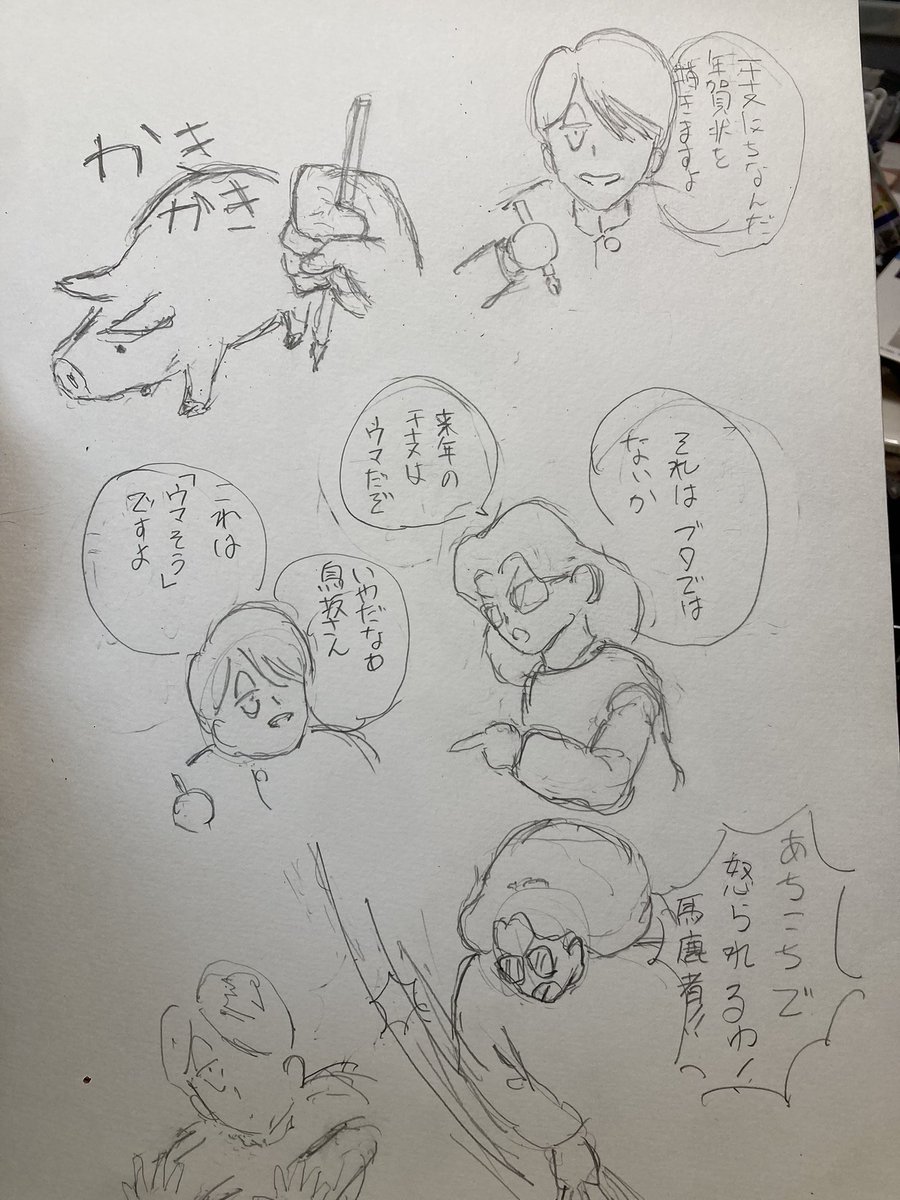 干支にちなんだ
年賀状を
描きますよ
かき
かき
それはブタでは
ないか
来年の
干支は
ウマだぞ
いやだなあ
鳥坂さん
これは
「ウマそう」
ですよ
あちこちで
怒られるわ!
馬鹿者!!